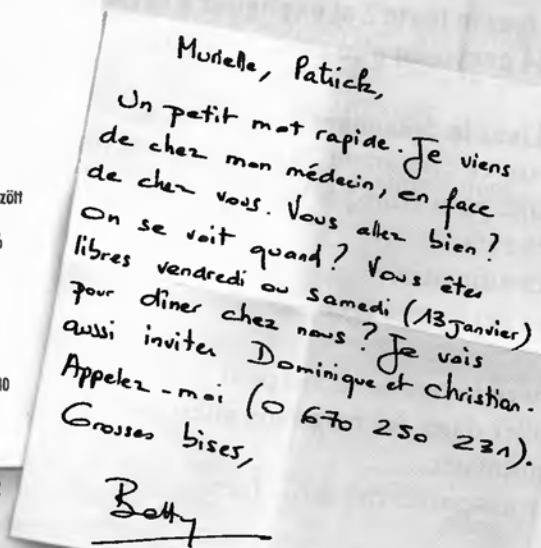 Murielle, Patrick,
Un petit mot rapide. Je viens
de chez mon médecin, en face
de chez vous. Vous allez bien ?
On se voit quand ? Vous êtes
libres vendredi ou samedi (13 janvier)
pour dîner chez nous ? Je vais
aussi inviter Dominique et Christian.
Appelez-moi (0 670 250 231).
Grosses bises,
Betty